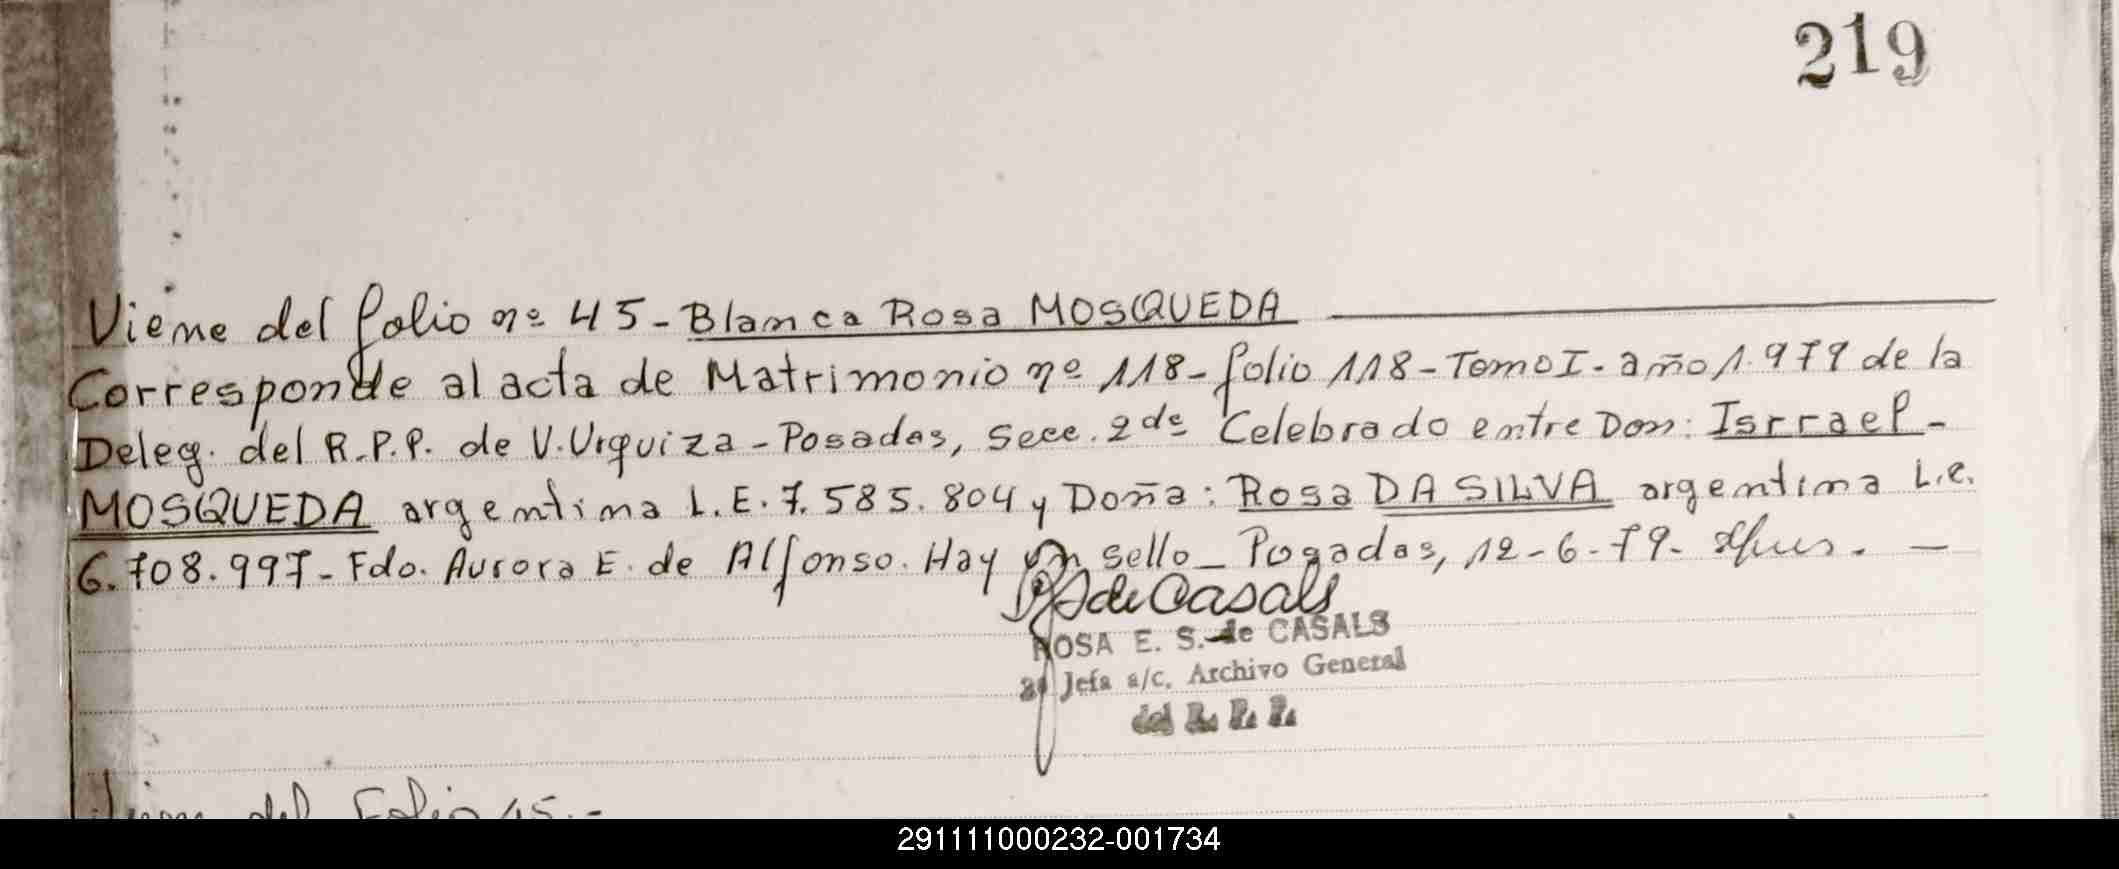 219
Viene del folio nº 45 - Blanca Rosa MOSQUEDA
Corresponde al acta de Matrimonio nº 118 - folio 118 - Tomo I. año 1.979 de la
Deleg. del R.P.P. de V. Urquiza - Posadas, Secc. 2da Celebrado entre Don: Isrrael -
MOSQUEDA argentina L.E. 7.585.804 y Doña: Rosa DA SILVA argentina L.e.
6.708.997 - Fdo. Aurora E. de Alfonso. Hay un sello - Posadas, 12-6-79. -
de Casals
ROSA E. S. de CASALS
Jefa a/c. Archivo General
del R. P. P.
Viene del Folio 45.-
291111000232-001734